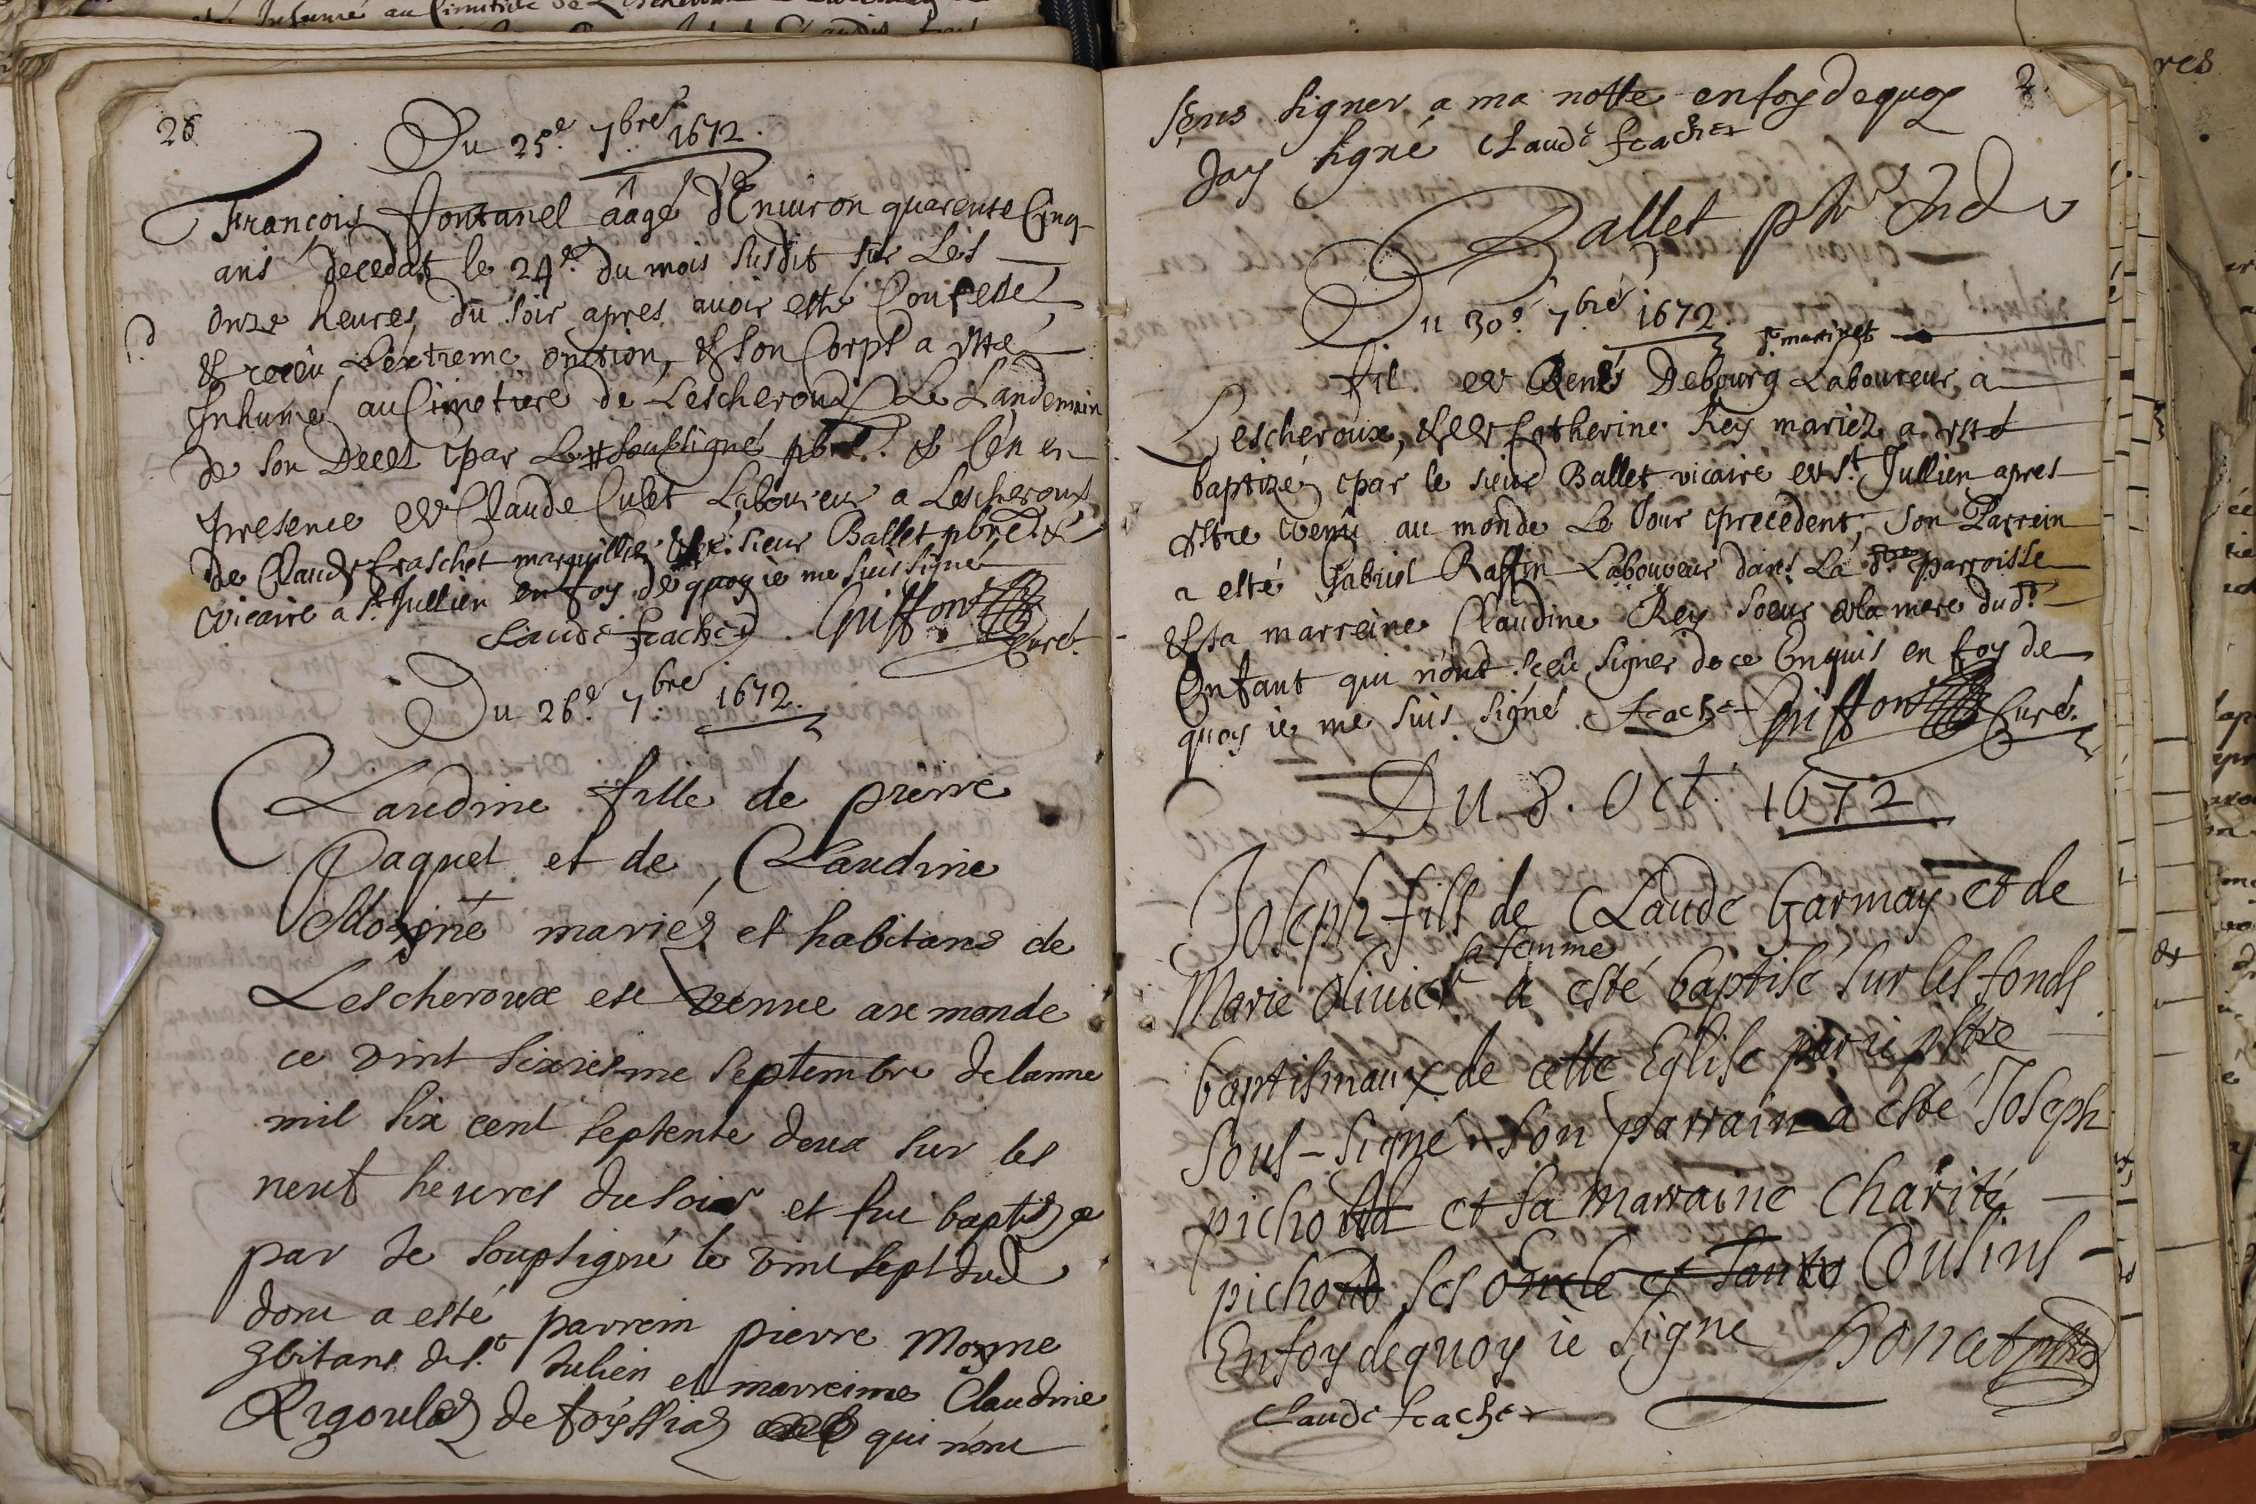 26
Du 25e. 7bre 1672.
François Fontanel aagé d'Enuiron quarente Cinq
ans decedat le 24e. du mois susdit sur Les
onze heures du soir apres auoir esté Confessé
& receu L'extreme onction, & son Corps a esté
Inhumé au Cimetiere de Lescheroux Le Landemain
de son Decet par Le soubsigné pbre. & Cen en
presence de Claude Culet Laboureur a Lescheroux
de Claude fraschet marguillier & sieur Ballet pbre &
vicaire a St. Jullien en foy de quoy ie me suis signé
Claude frachet Griffon Curé.
Du 26e. 7bre 1672.
Claudine fille de pierre
Paquet et de Claudine
Moyne mariés et habitans de
Lescheroux est venue au monde
ce vint sixiesme septembre de lanne
mil six cent septente deux sur les
neuf heures du soir et fut baptisee
par Je soupsigné le vint sept dud
dont a esté parrein pierre Moyne
hbitant de St. Julien et marreine Claudine
Rigoulet de foyssiaz qui n'ont
sceus signer a ma notte en foy de quoy
Jay signé Claude frachet
Ballet pbre
Du 30e. 7bre 1672.
martinet
fil de René Debourg Laboureur a
Lescheroux, & de Catherine Rey mariez a esté
baptizé par le sieur Ballet vicaire de St. Jullien apres
estre venu au monde Le Jour precedent, son Parrein
a esté Gabriel Raffin Laboureur dans La de. parroisse
& sa marreine Claudine Rey soeur de la mere dud.
Enfant qui n'ont sceu signer de ce Enquis en foy de
quoy ie me suis signé frachet Griffon Curé.
Du 8. Oct. 1672
Joseph fils de Claude Garmay et de
sa femme
Marie Oliuier a esté baptisé sur les fonds
baptismaux de cette Eglise par ie pbtre
sous-signé. son parrain a esté Joseph
pichod et sa marraine Charité
pichod ses oncle et tante Cousins
En foy de quoy ie signe Poncet pbtre
Claude frachet